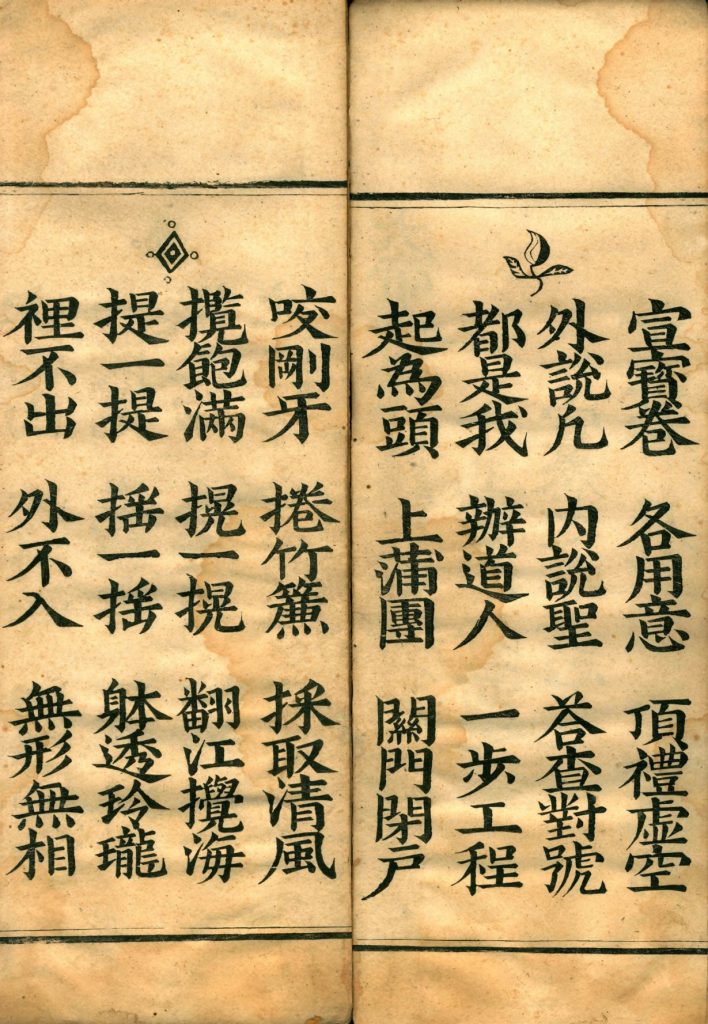 宣寶卷 各用意 頂禮虛空
外說凡 内說聖 荅查對號
都是我 辦道人 一步工程
起為頭 上蒲團 關門閉户
咬剛牙 捲竹簾 採取清風
攬飽滿 提一提 翻江攪海
提一提 揺一揺 躰透玲瓏
裡不出 外不入 無形無相